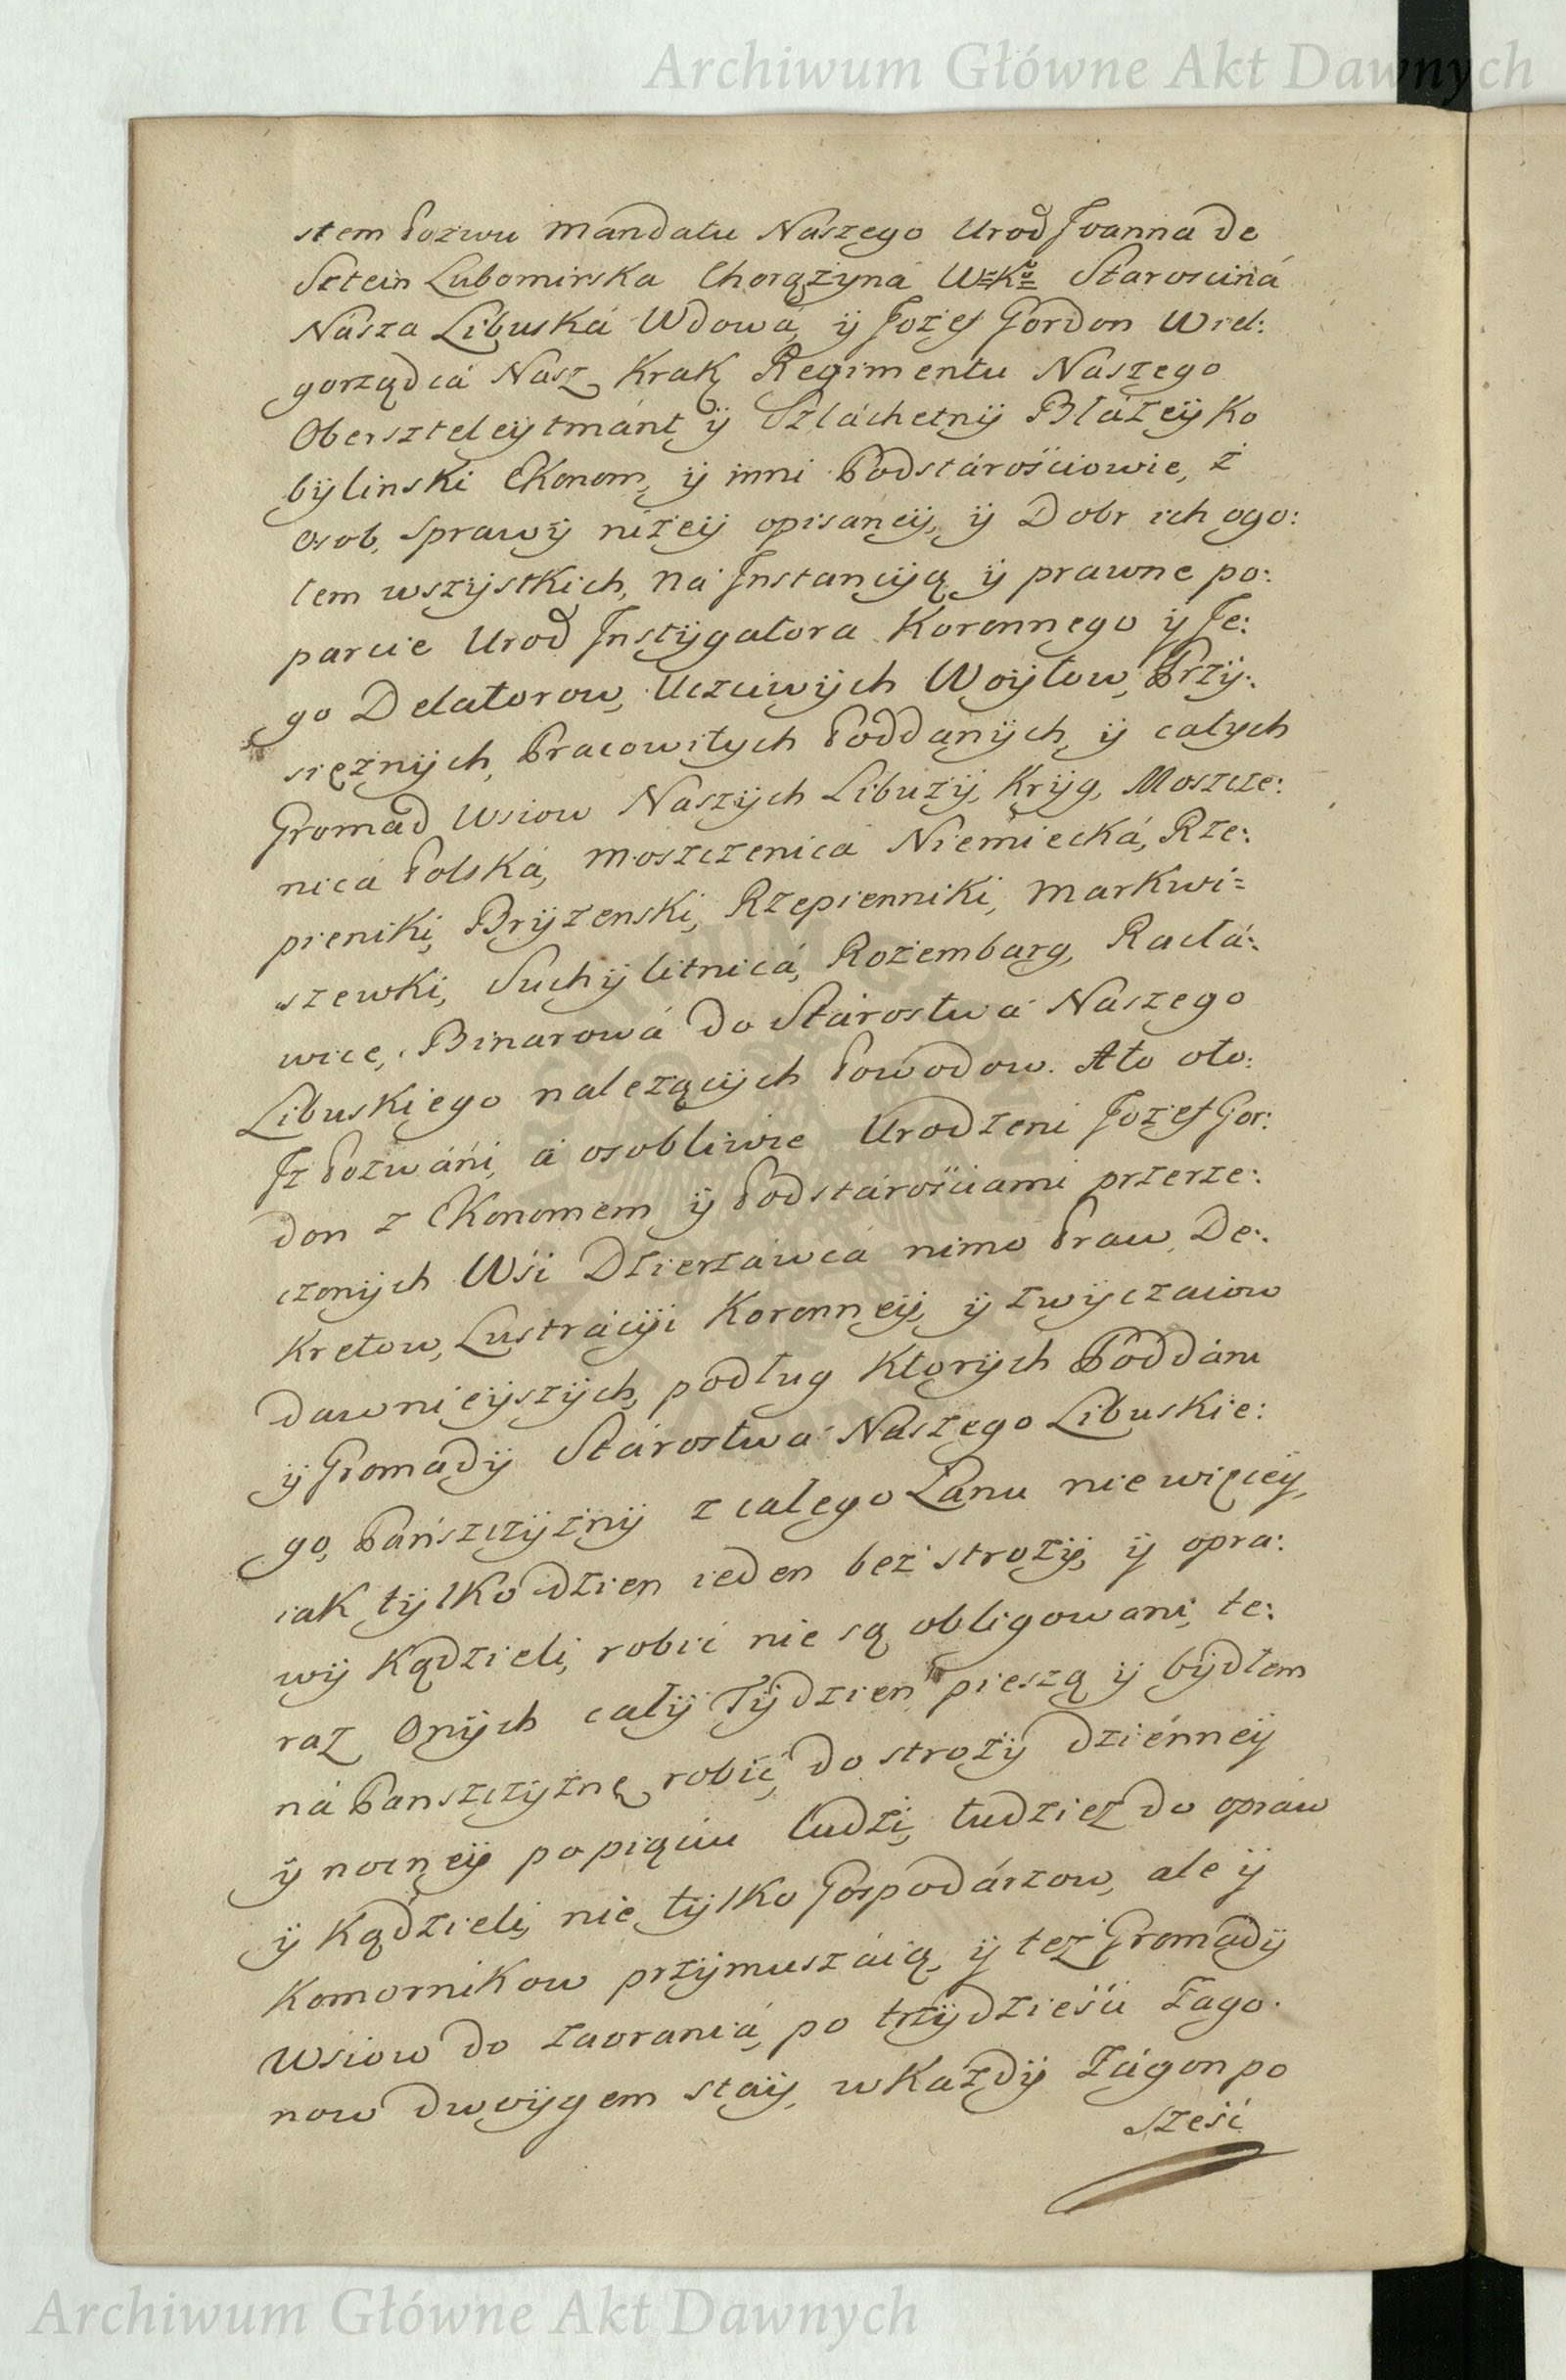 Archiwum Główne Akt Dawnych
stem Pozwu Mandatu Naszego Urod Joanna De
Sztein Lubomirska Chorążyna W=Kº Starościná
Nasza Libuská Wdowá, ÿ Jozef Gordon Wiel:
gorządcá Nasz Krak Regimentu Naszego
Oberszteleÿtmánt ÿ Szláchetnÿ Błáżeÿ Ko
bÿlinski Ekonom, ÿ inni Podstárościowie, z
osob, Sprawÿ niżeÿ opisaneÿ, ÿ Dobr ich ogo:
łem wszÿstkich, ná Instancÿą ÿ prawne po:
parcie Urod Instÿgatora Koronnego ÿ Je:
go Delatorow, Uczciwÿch Woÿtow, Przÿ:
siężnÿch, Pracowitych Poddanÿch, ÿ całych
Gromad Wsiow Naszÿch Libuzÿ, Krÿg, Moszcze:
nicá Polská, Moszczenica Niemiecká, Rze:
pieniki, Brÿzenski, Rzepienniki, Markwi=
szewki, Suchÿ litnicá, Rozembarg, Racłá:
wice, Binarowá do Stárostwá Naszego
Libuskiego należącÿch Powodow. Ato oto:
Iż Pozwáni, á osobliwie Urodzeni Jozef Gor:
don z Ekonomem ÿ Podstárościami przerze:
czonÿch Wśi Dzierżáwcá nimo Praw, De:
kretow, Lustráciÿi Koronneÿ, ÿ zwÿczaiow
dawnieÿszÿch, podług ktorÿch Poddáni
ÿ Gromadÿ Stárostwá Naszego Libuskie:
go, Pańszczÿznÿ z całego Łanu nie więceÿ,
iak tÿlko dzien ieden bez strożÿ, ÿ opra:
wÿ kądzieli, robić nie są obligowani, te:
raz Onÿch całÿ Tÿdzien pieszą ÿ bÿdłem
ná Panszczÿznę robić, do strożÿ dziénneÿ
ÿ nocneÿ po piąciu ludzi, tudziez do opráw
ÿ kądzieli, nie tÿlko Gospodárzow, ale ÿ
Komornikow przÿmuszáią, ÿ też Gromadÿ
Wsiow do zaoraniá, po trzÿdzieści Zago:
now dwoÿgem staÿ, w każdÿ Zágon po
sześć
Archiwum Główne Akt Dawnych